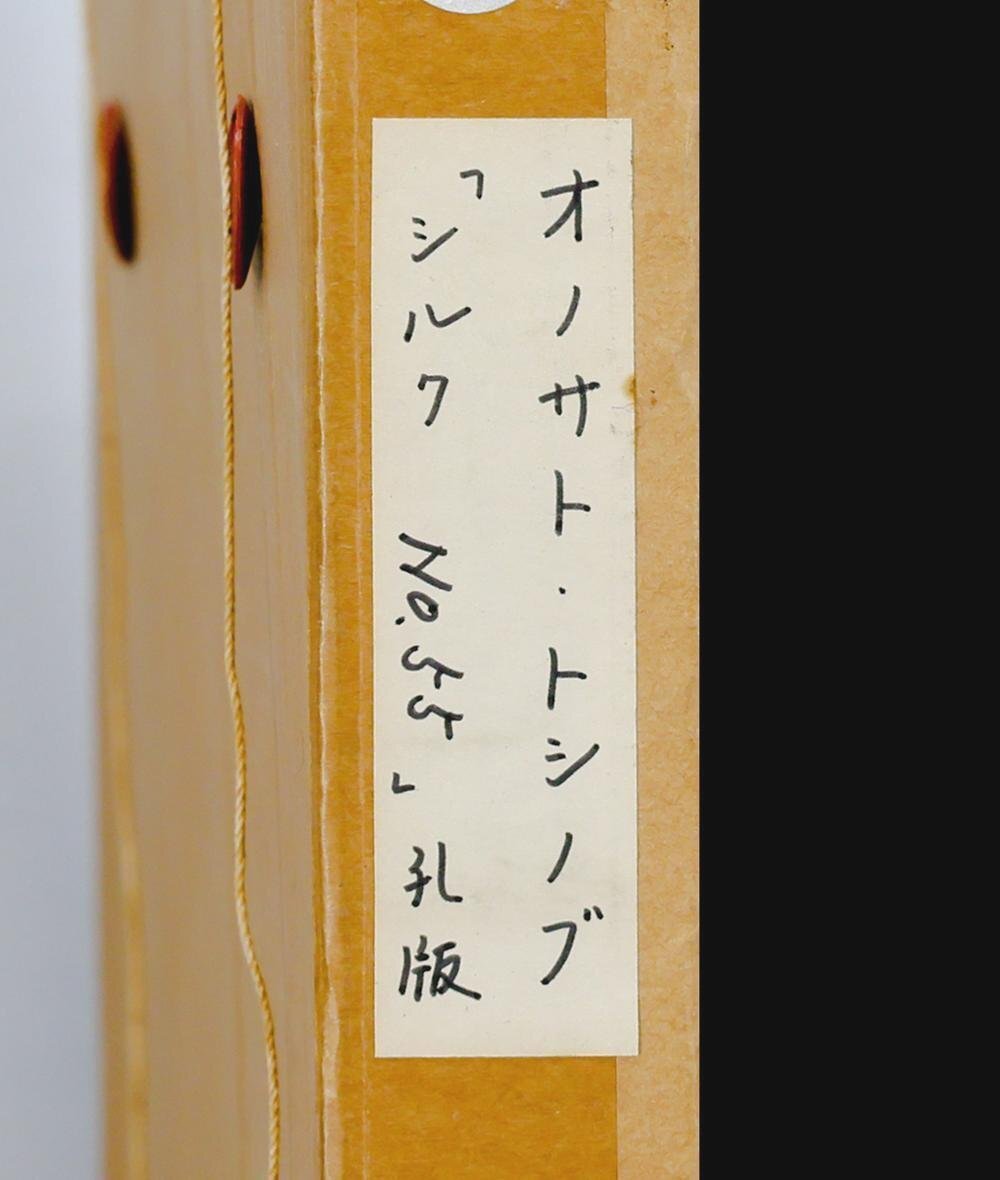 オノサト・トシノブ
「シルク No.55」孔版